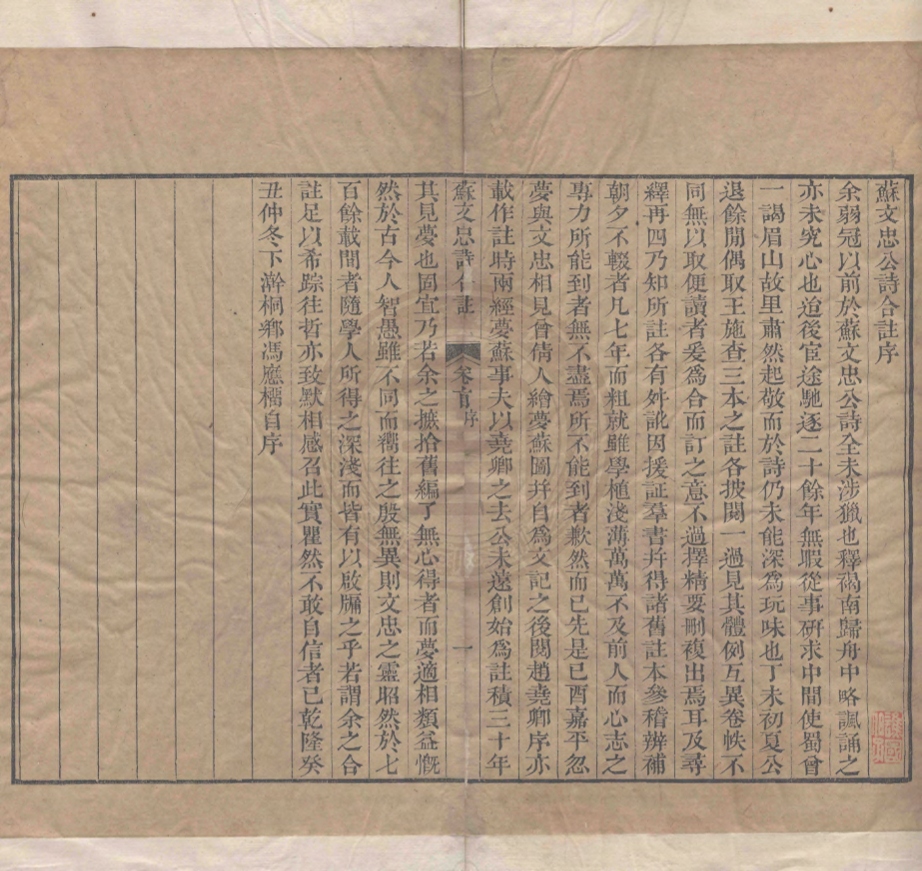 蘇文忠公詩合註序
余弱冠以前於蘇文忠公詩全未涉獵也釋褐南歸舟中略諷誦之
亦未究心也迨後宦途馳逐二十餘年無暇從事硏求中間使蜀曾
一謁眉山故里肅然起敬而於詩仍未能深爲玩味也丁未初夏公
退餘閒偶取王施查三本之註各披閱一過見其體例互異卷帙不
同無以取便讀者爰爲合而訂之意不過擇精要刪複出焉耳及尋
繹再四乃知所註各有舛訛因援証羣書幷得諸舊註本參稽辨補
朝夕不輟者凡七年而粗就雖學植淺薄萬萬不及前人而心志之
專力所能到者無不盡焉所不能到者歉然而已先是己酉嘉平忽
夢與文忠相見曾倩人繪夢蘇圖幷自爲文記之後閱趙堯卿序亦
載作註時兩經夢蘇事夫以堯卿之去公未遠創始爲註積三十年
蘇文忠詩合註 卷首序 一
其見夢也固宜乃若余之摭拾舊編了無心得者而夢適相類益慨
然於古今人智愚雖不同而嚮往之殷無異則文忠之靈昭然於七
百餘載間者隨學人所得之深淺而皆有以啟牖之乎若謂余之合
註足以希踪往哲亦致默相感召此實瞿然不敢自信者已乾隆癸
丑仲冬下澣桐鄉馮應榴自序